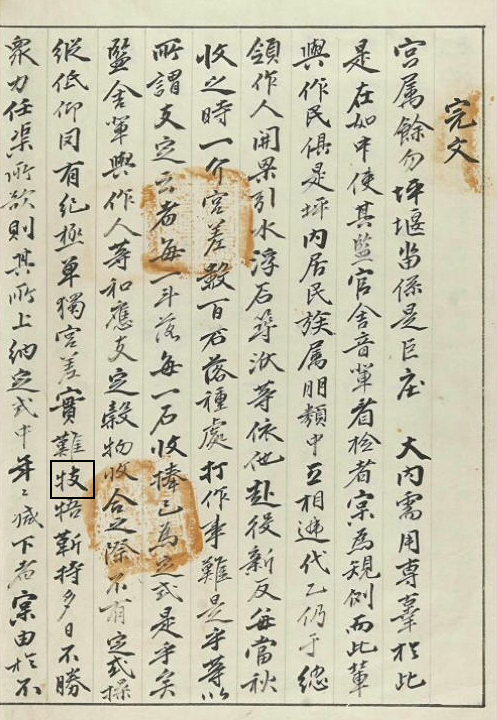 完文
宮属餘勿坪堰畓係是巨庄 大內需用専辜於此
是在如中使其監官舍音軰看檢者寔為規例而此軰
與作民俱是坪內居民族属朋類中互相逓代乙仍于総
領作人開渠引水浮石築洑等依他赴役新反每當秋
收之時一介宮差數百石落種處打作事難是乎等以
所謂支定云者每一斗落每一石收捧已為定式是乎矣
監舍軰與作人等和應支定穀物收合之際不有定式操
縱低仰罔有紀極單獨宮差實難⿰牜支牾靳持多日不勝
衆力任渠所欲則其所上納定式中年〻减下者寔由於不